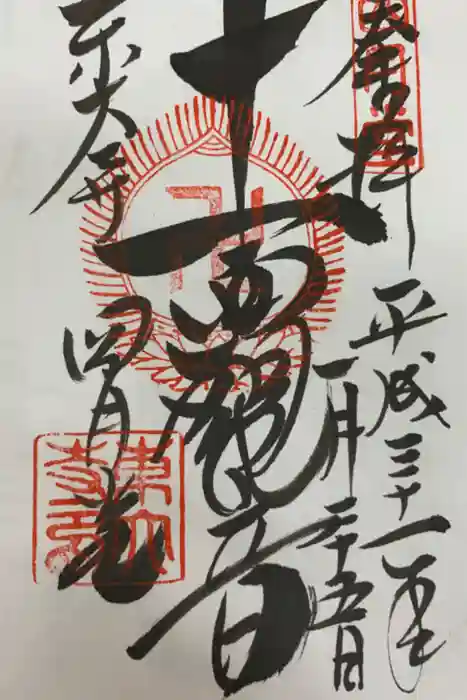 奉拝
平成三十一年
一月二十五日
十一面観音
四月堂